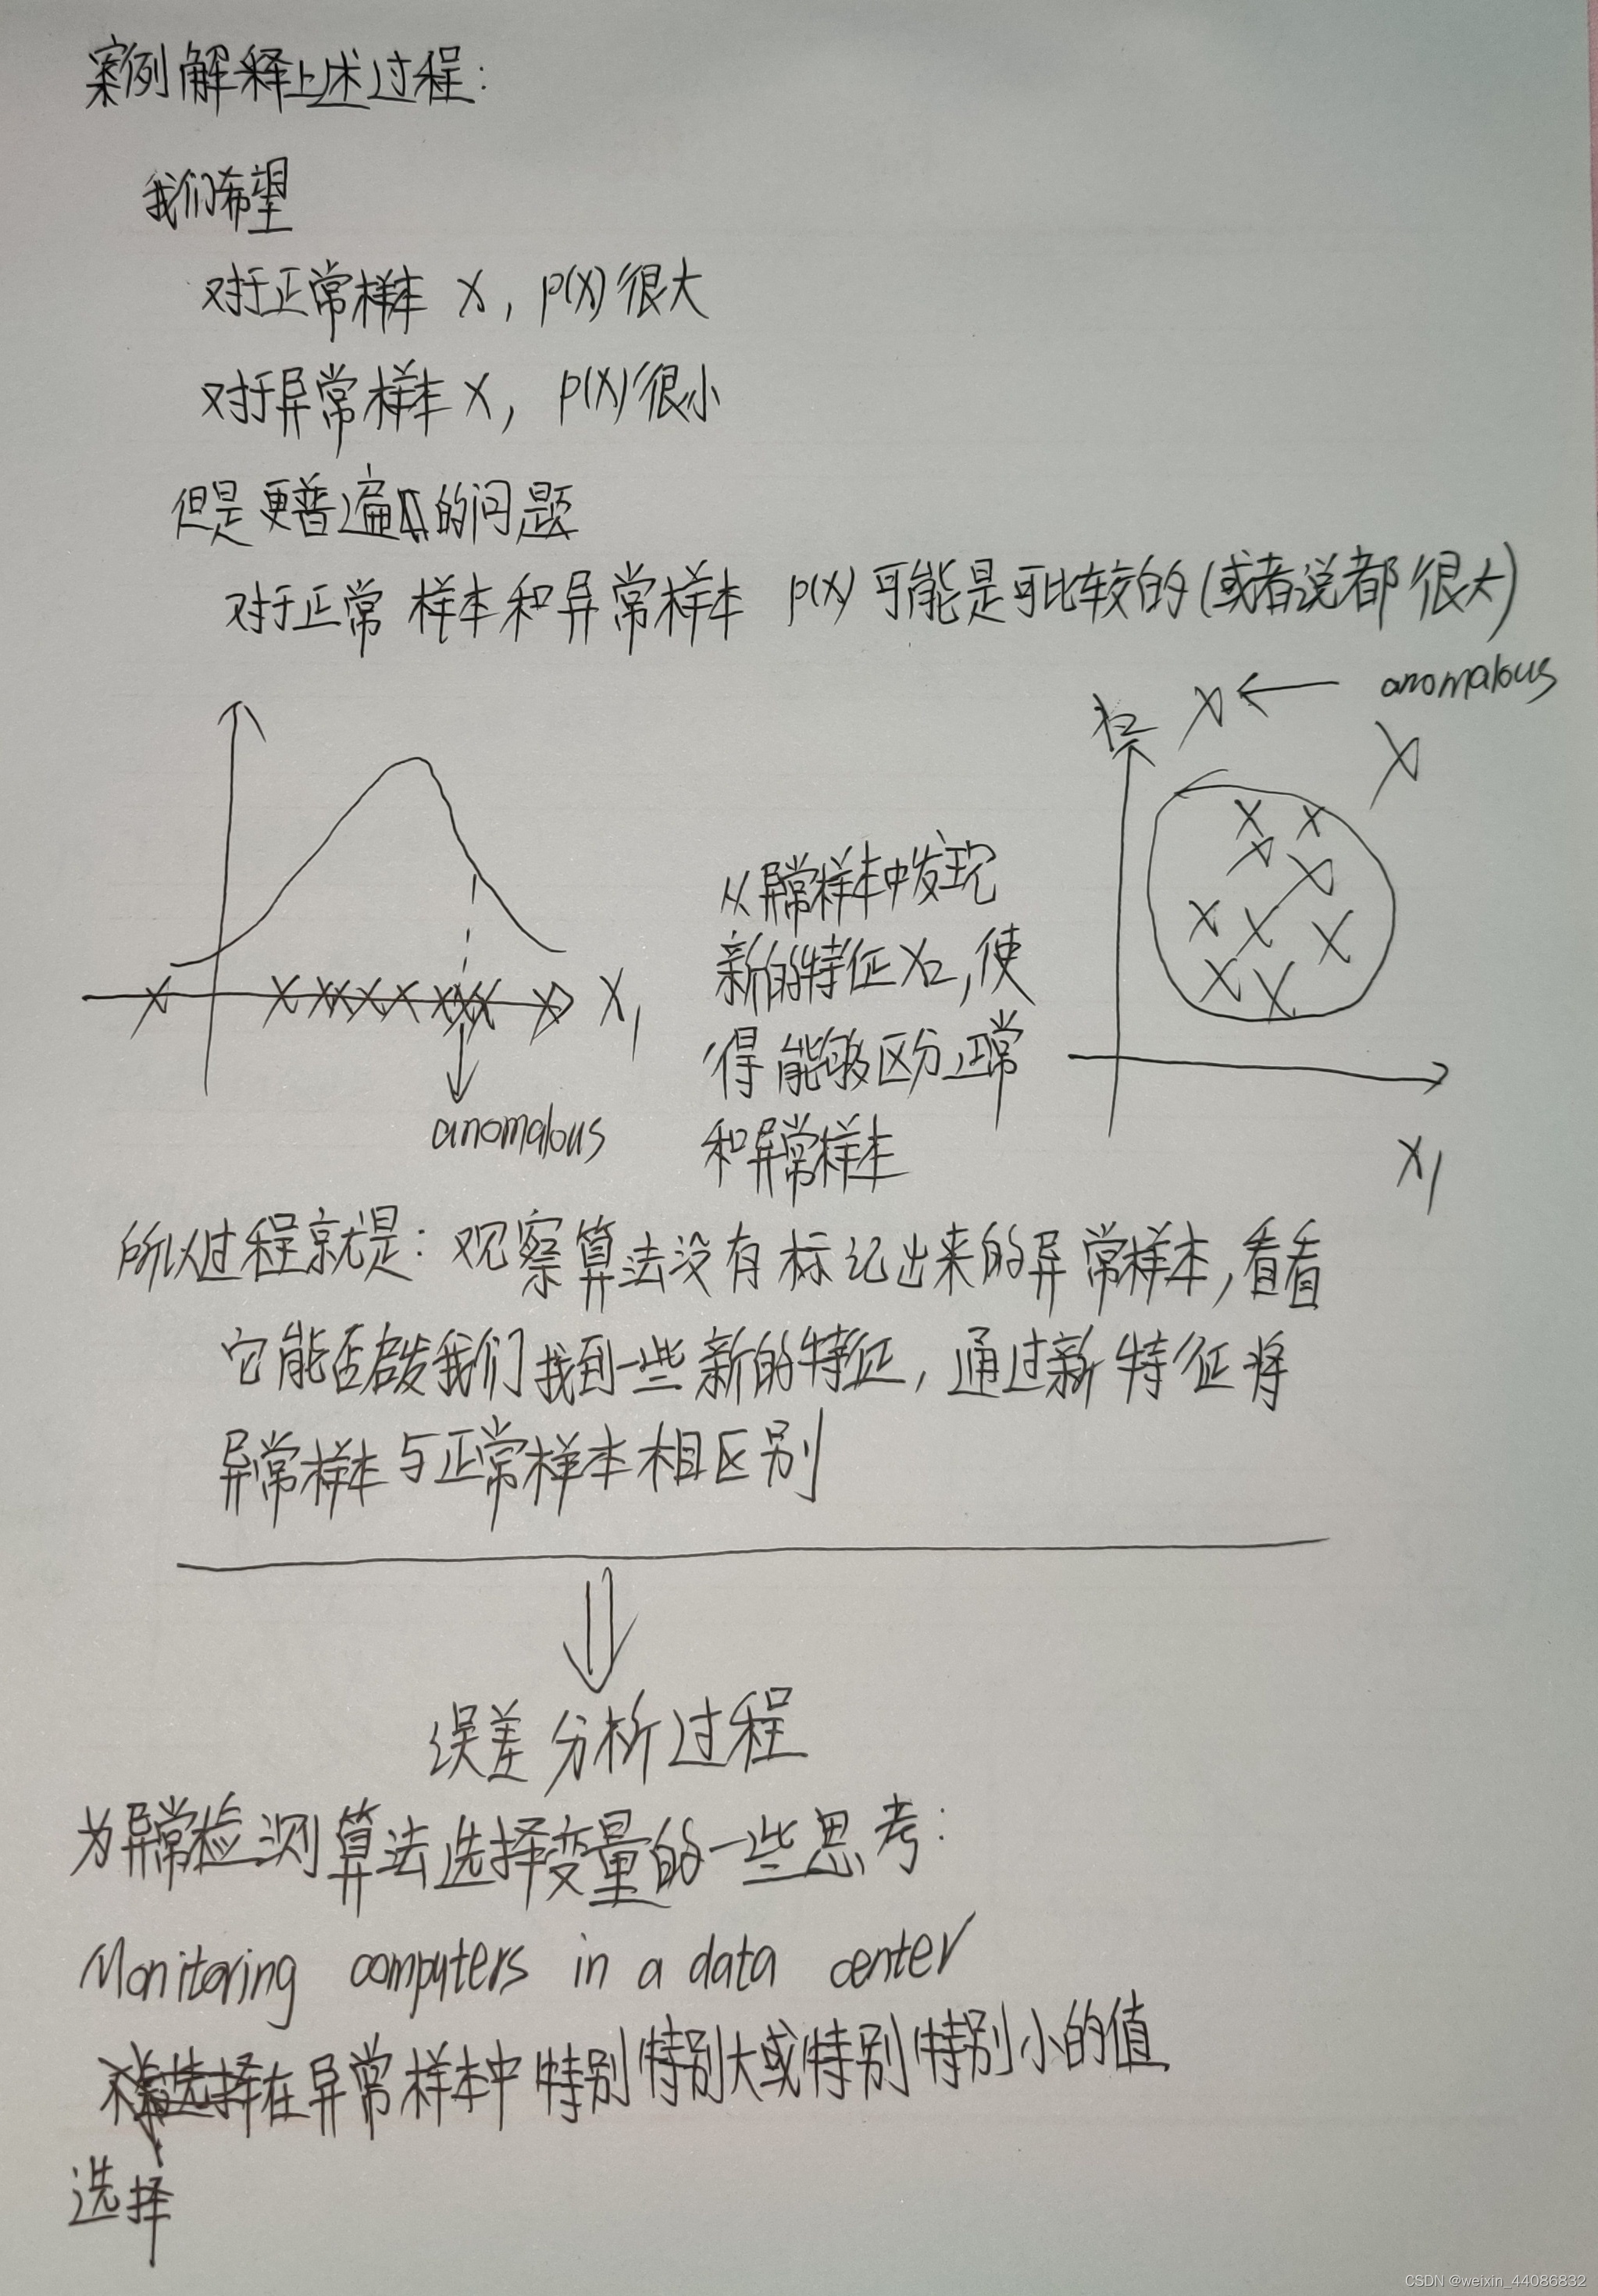 案例解释上述过程：
我们希望
对于正常样本 x，p(x)很大
对于异常样本x，p(x)很小
但是更普遍的问题
对于正常样本和异常样本 p(x)可能是可比较的(或者说都很大)
x2
anomalous
从异常样本中发现
新的特征x2,使
得能够区分正常
和异常样本
x1
anomalous
x1
所以过程就是：观察算法没有标记出来的异常样本，看看
它能否启发我们找到一些新的特征，通过新特征将
异常样本与正常样本相区别
误差分析过程
为异常检测算法选择变量的一些思考：
Monitoring computers in a data center
在异常样本中特别特别大或特别特别小的值
选择
CSDN @weixin_44086832